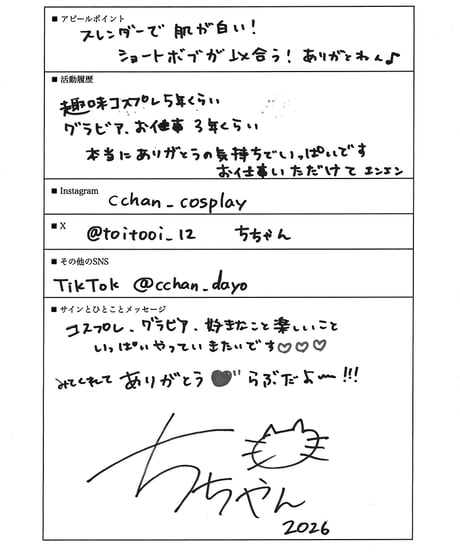 ■ アピールポイント
スレンダーで 肌が白い!
ショートボブが似合う! ありがとねん♪
■ 活動履歴
趣味コスプレ5年くらい
グラビア、お仕事 3年くらい
本当にありがとうの気持ちでいっぱいです
お仕事いただけて エンエン
■ Instagram
cchan_cosplay
■ X
@toitooi_12 ちちゃん
■ その他のSNS
TikTok @cchan_dayo
■ サインとひとことメッセージ
コスプレ、グラビア、好きなこと楽しいこと
いっぱいやっていきたいです♡♡♡
みてくれて ありがとう♥゛らぶだよ〜!!!
ちちゃん
2026